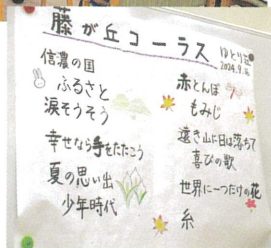 藤が丘コーラス
ゆとり荘
2024.9.16
信濃の国
ふるさと
涙そうそう
幸せなら手をたたこう
夏の思い出
少年時代
赤とんぼ
もみじ
遠き山に日は落ちて
喜びの歌
世界に一つだけの花
糸